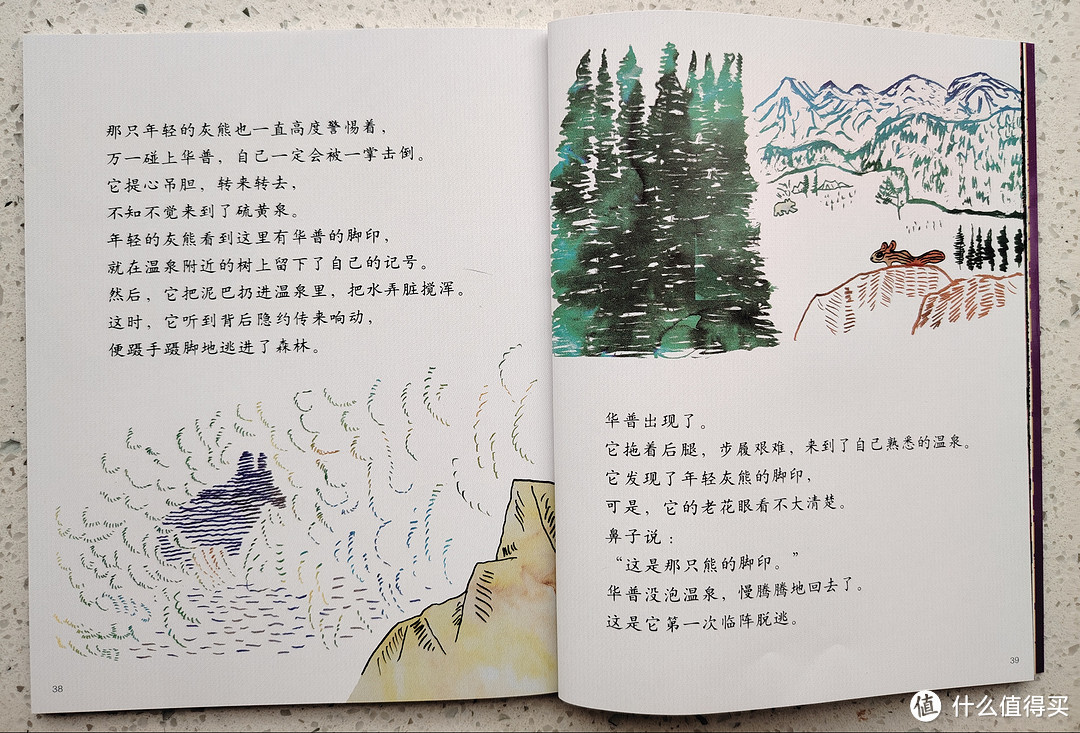 那只年轻的灰熊也一直高度警惕着，
万一碰上华普，自己一定会被一掌击倒。
它提心吊胆，转来转去，
不知不觉来到了硫黄泉。
年轻的灰熊看到这里有华普的脚印，
就在温泉附近的树上留下了自己的记号。
然后，它把泥巴扔进温泉里，把水弄脏搅浑。
这时，它听到背后隐约传来响动，
便蹑手蹑脚地逃进了森林。
38
华普出现了。
它拖着后腿，步履艰难，来到了自己熟悉的温泉。
它发现了年轻灰熊的脚印，
可是，它的老花眼看不大清楚。
鼻子说：
“这是那只熊的脚印。”
华普没泡温泉，慢腾腾地回去了。
这是它第一次临阵脱逃。
39
值 什么值得买